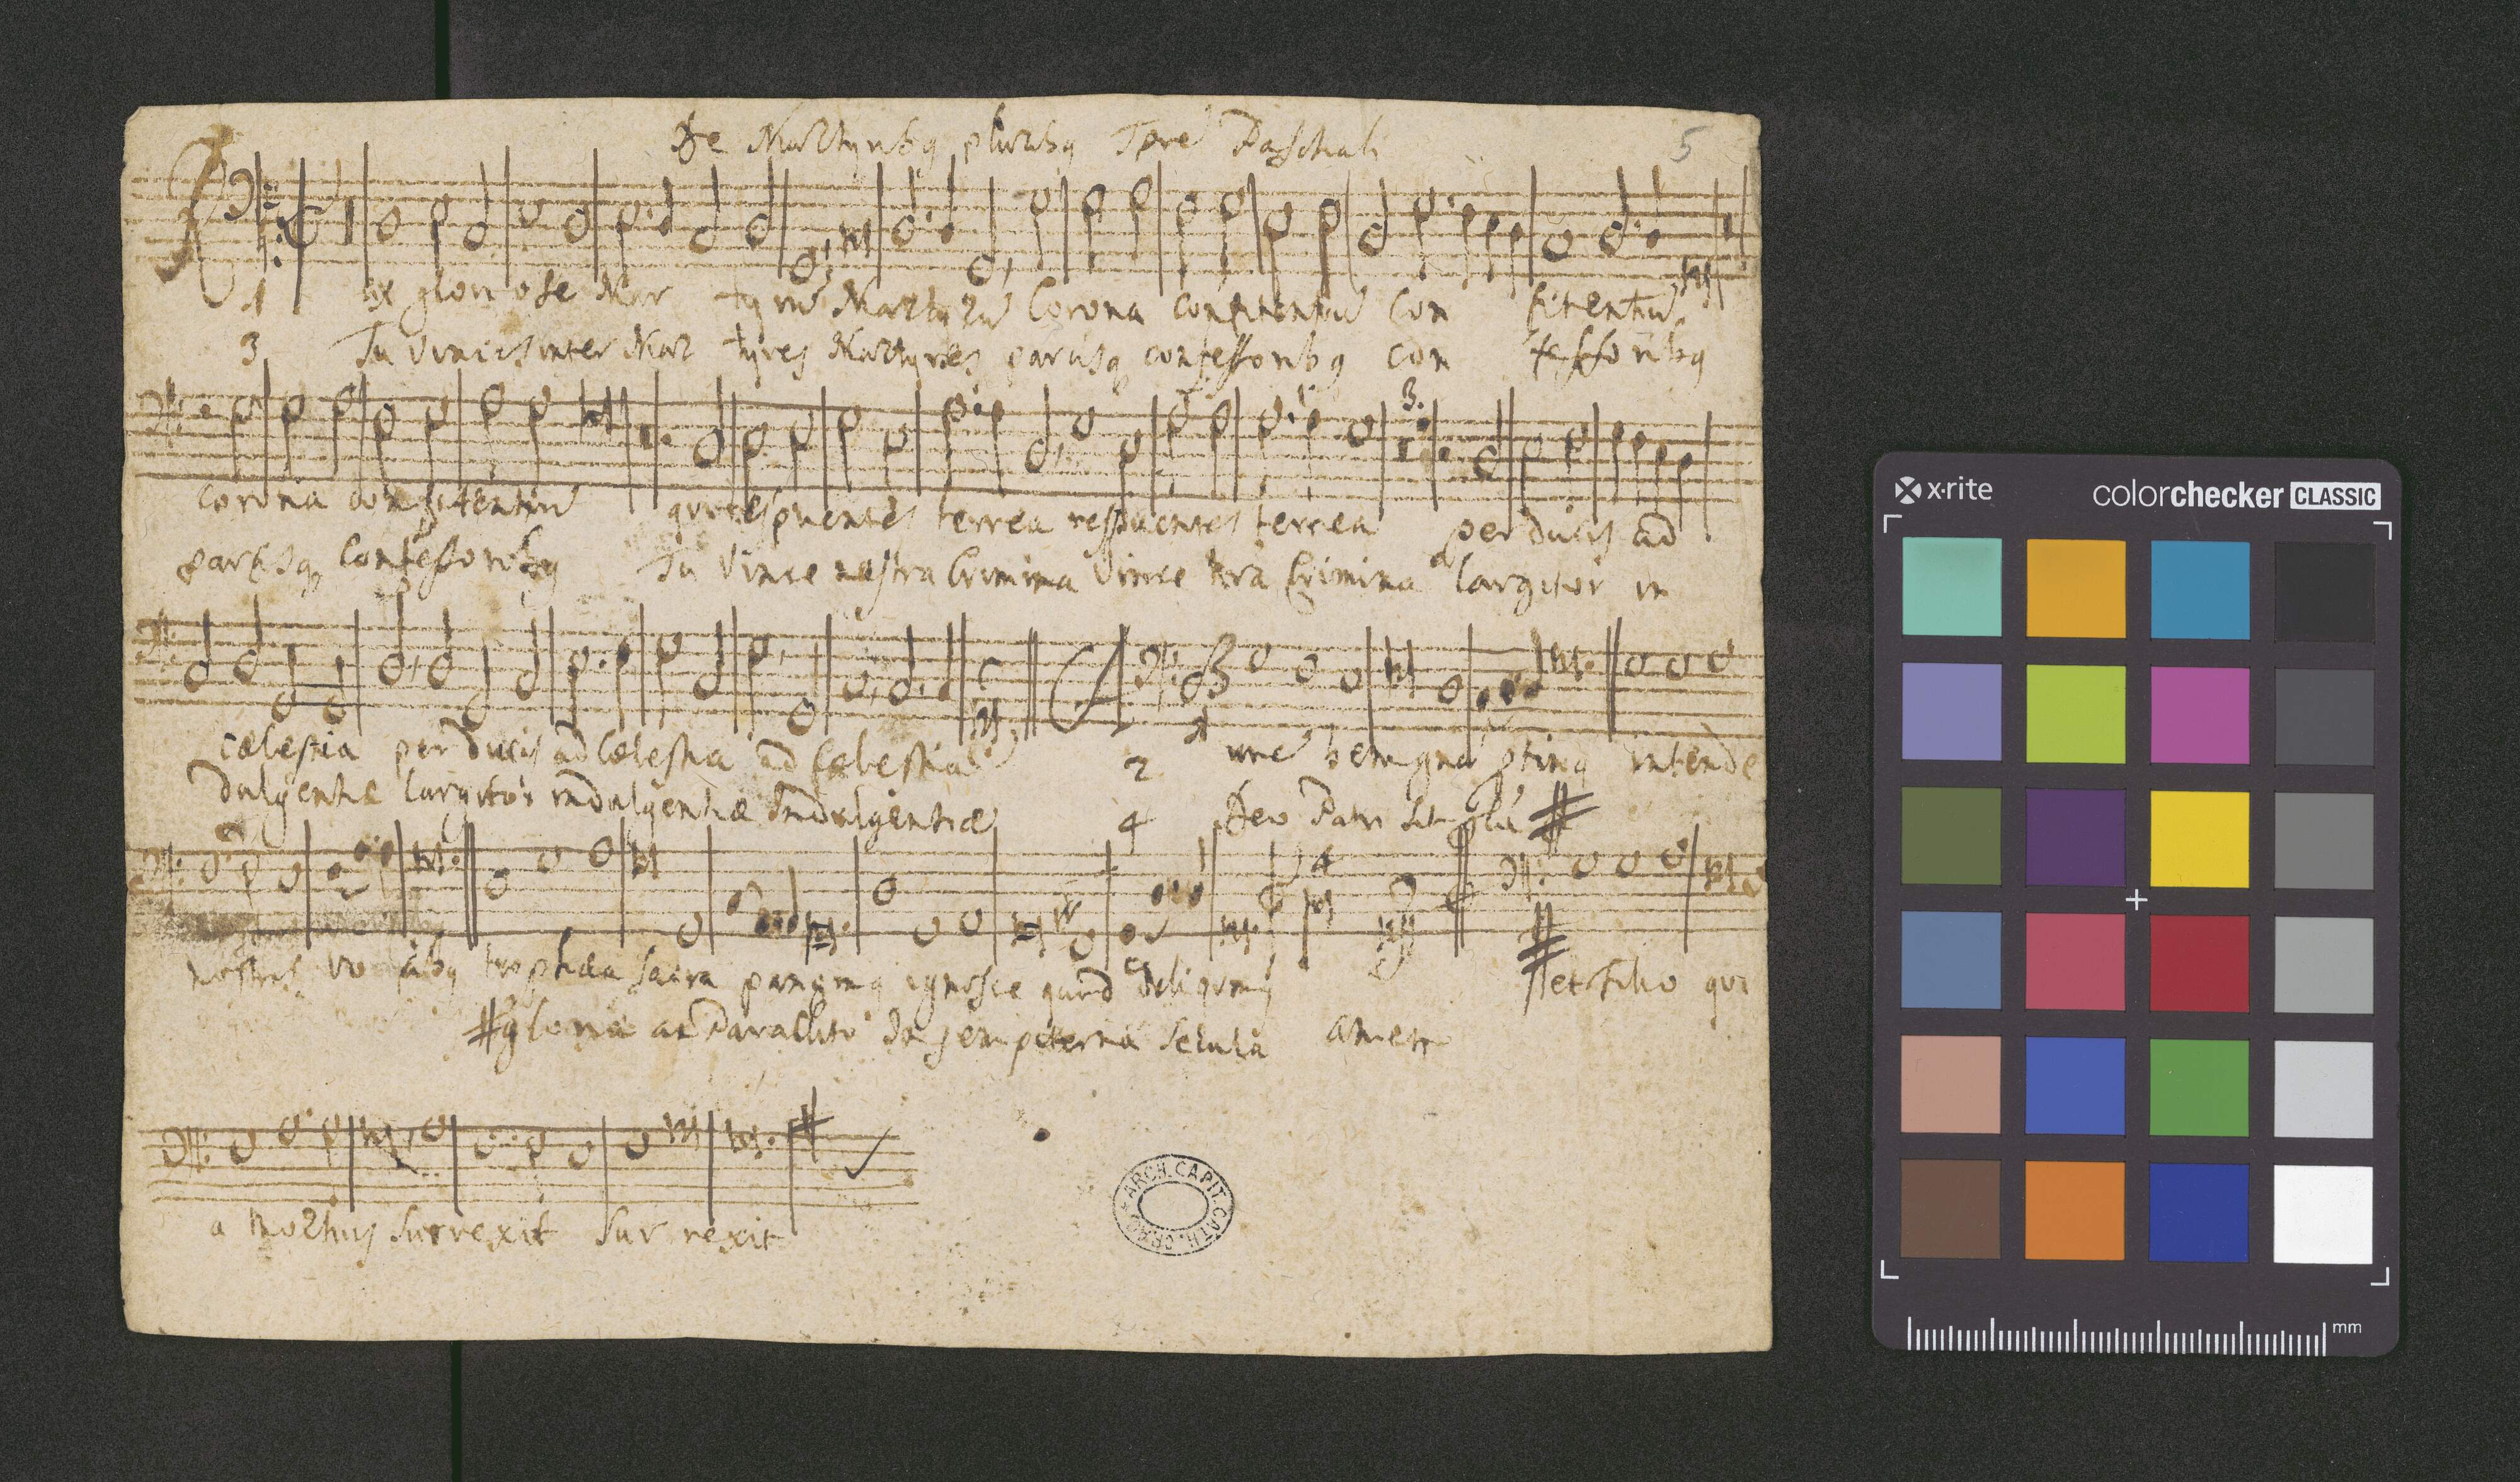 De Martyribq pluribq Tpre Paschali
5
1 Rex gloriose Mar tyrũ Martyrũ Corona confitentiũ Con fitentiũ
3 Tu Vincis inter Mar tyres Martyres parcisq confessoribq con fessoribq
3.
corona confitentiũ qui respuentes terrea respuentes terrea perducis ad
parcisq Confessoribq Tu Vince nostra Crimina Vince nra Crimina largitor in
cœlestia perducis ad Cœlestia ad Cœlestia 2 Aurẽ benignã ptinq intende
dulgentiæ largitor indulgentiæ Indulgentiæ 4 Deo Patri sit glã #
4
nostris vo cibq trophæa sacra pangimq ignosce quod deliqvimq # et Filio qvi
# gloria ac Paraclito In sempiterna secula amen
a Mortuis surrexit sur rexit
ARCH. CAPIT. CATH. CRAC.
x-rite
colorchecker CLASSIC
mm